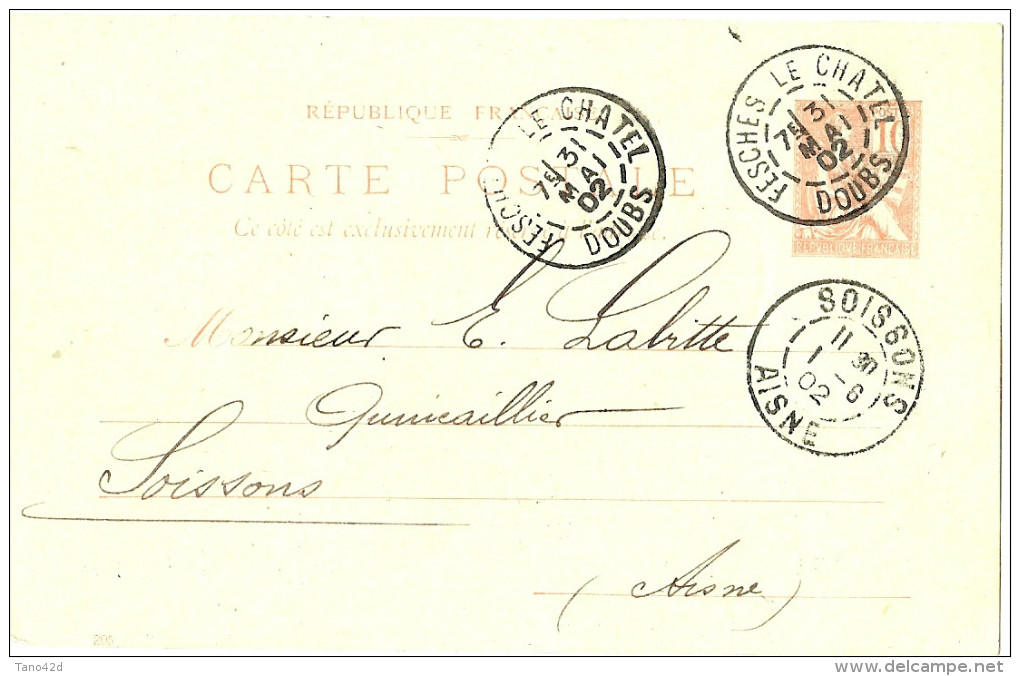 RÉPUBLIQUE FRANÇAISE
CARTE POSTALE
Ce côté est exclusivement réservé à l'adresse.
FESCHES LE CHATEL
7E 31
MAI
02
DOUBS
FESCHES LE CHATEL
7E 31
MAI
02
DOUBS
10
RÉPUBLIQUE FRANÇAISE
SOISSONS
11 30
1 - 6
02
AISNE
Monsieur E. Labitte
Quincaillier
Soissons
(Aisne)
205
Tano42d
delcampe.net